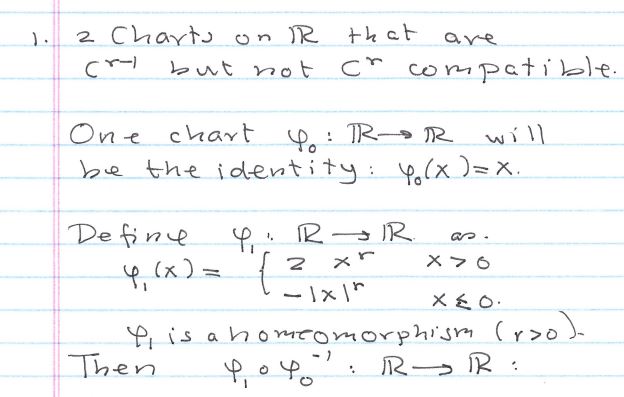 1. 2 Charts on ℝ that are
C^{r-1} but not C^r compatible.
One chart φ₀ : ℝ → ℝ will
be the identity : φ₀(x) = x.
Define φ₁ : ℝ → ℝ as.
φ₁(x) = { 2 x^r x > 0
-|x|^r x ≤ 0.
φ₁ is a homeomorphism (r>0).
Then φ₁ ∘ φ₀⁻¹ : ℝ → ℝ :